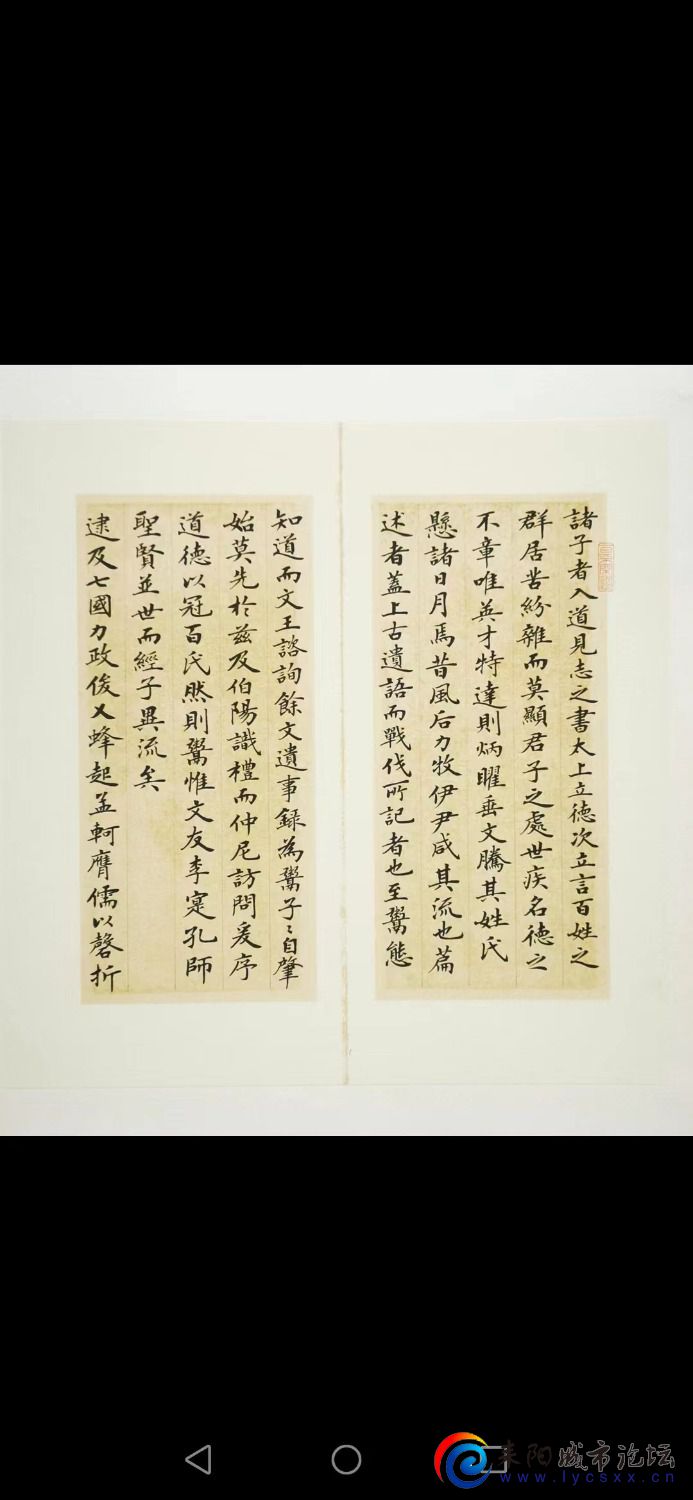 諸子者入道見志之書太上立德次立言百姓之
群居苦紛雜而莫顯君子之處世疾名德之
不章唯英才特達則炳曜垂文騰其姓氏
懸諸日月焉昔風后力牧伊尹咸其流也篇
述者蓋上古遺語而戰伐所記者也至鬻熊
知道而文王諮詢餘文遺事録為鬻子〻自肇
始莫先於兹及伯陽識禮而仲尼訪問爰序
道德以冠百氏然則鬻惟文友李寔孔師
聖賢並世而經子異流矣
逮及七國力政俊乂蜂起孟軻膺儒以磬折
耒阳城市论坛
www.lycsxx.cn